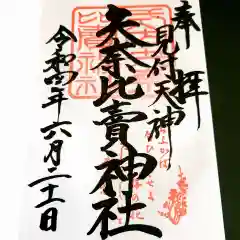 奉拝
見付天神
矢奈比賣神社
令和四年六月二十一日